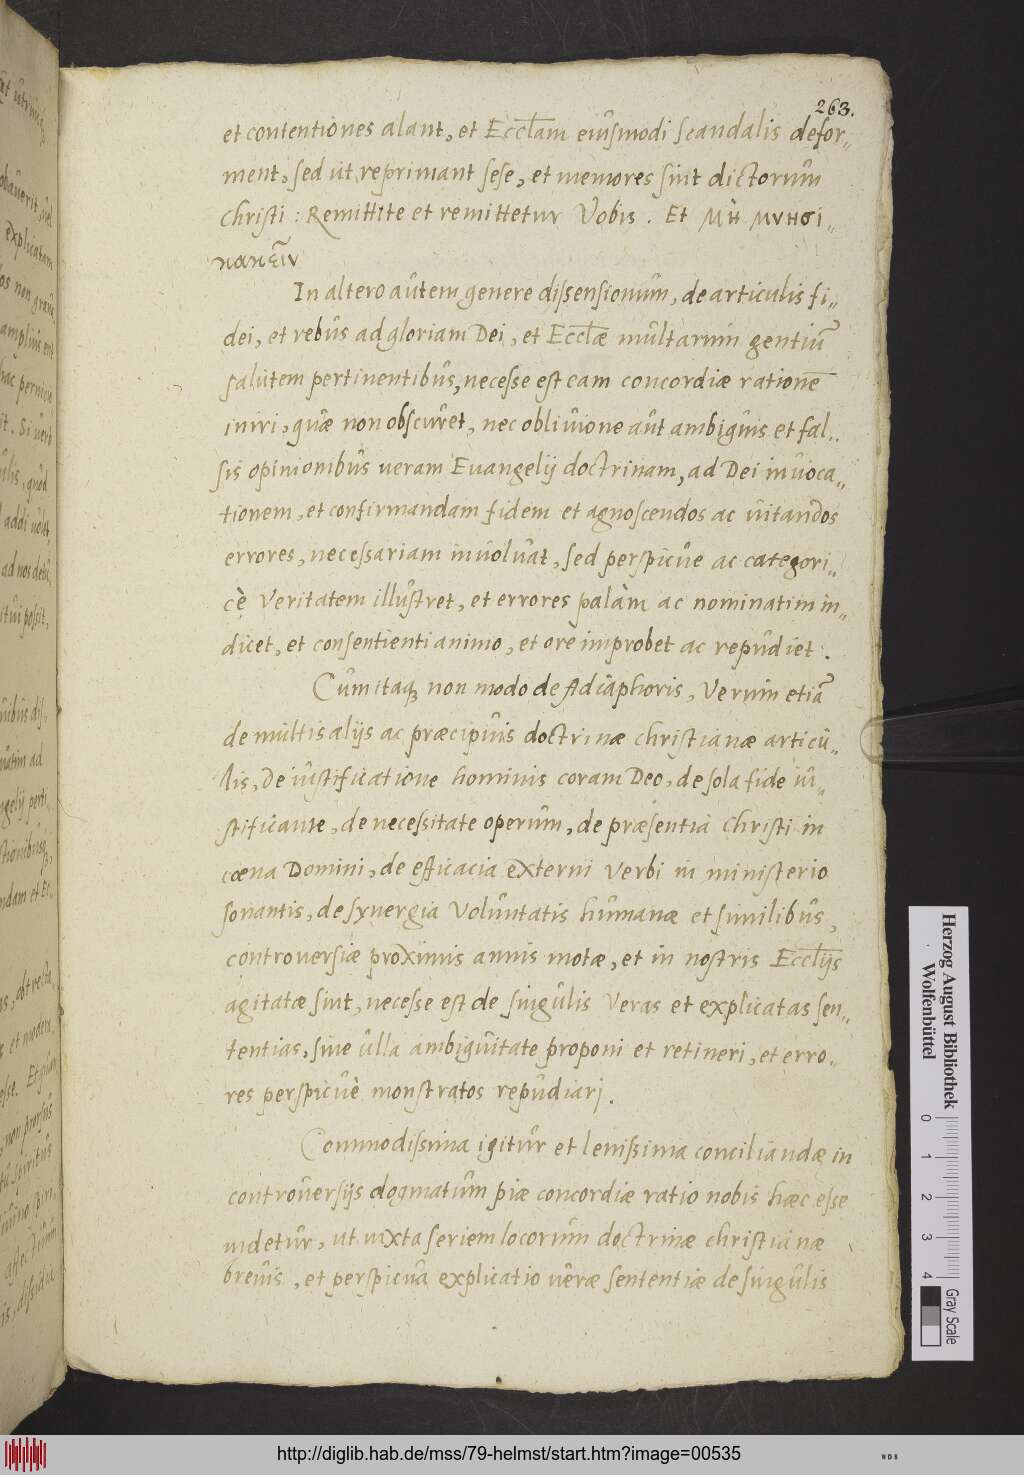 263.
et contentiones alant, et Eccl̅am eiusmodi scandalis defor„
ment, sed ut reprimant sese, et memores sint dictorum
Christi : Remittite et remittetur Vobis. Et μὴ μνησι„
κακεῖν
In altero autem genere dissensionum, de articulis fi„
dei, et rebus ad gloriam Dei, et Eccl̅æ multarum gentiū
salutem pertinentibus, necesse est eam concordiæ rationē
iniri, quæ non obscuret, nec obliuione aut ambiguis et fal„
sis opinionibus ueram Euangelij doctrinam, ad Dei inuoca„
tionem, et confirmandam fidem et agnoscendos ac uitandos
errores, necessariam inuoluat, sed perspicue ac categori„
cè Veritatem illustret, et errores palàm ac nominatim in„
dicet, et consentienti animo, et ore improbet ac repudiet.
Cum itaq; non modo de Adiaphoris, Verum etiā
de multis alijs ac præcipuis doctrinæ christianæ articu„
lis, De iustificatione hominis coram Deo, de sola fide iu„
stificante, de necessitate operum, de præsentia Christi in
coena Domini, de efficacia externi Verbi in ministerio
sonantis, de synergia Voluntatis humanæ et similibus,
controuersiæ proximis annis motæ, et in nostris Eccl̅ijs
agitatæ sint, necesse est de singulis Veras et explicatas sen„
tentias, sine ulla ambiguitate proponi et retineri, et erro„
res perspicuè monstratos repudiarj.
Commodissima igitur et lenissima conciliandæ in
controuersijs dogmatum piæ concordiæ ratio nobis hæc esse
uidetur, ut iuxta seriem locorum doctrinæ christianæ
breuis, et perspicua explicatio ueræ sententiæ de singulis
Herzog August Bibliothek
Wolfenbüttel
0 1 2 3 4
Gray Scale
http://diglib.hab.de/mss/79-helmst/start.htm?image=00535
WDB